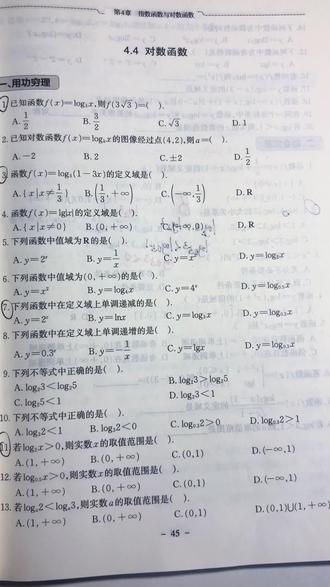 第4章 指数函数与对数函数
4.4 对数函数
一、用功穷理
1. 已知函数f(x)=log₃x,则f(3√3)=( ).
A. 1/2 B. 3/2 C. √3 D. 1
2. 已知对数函数f(x)=logₐx的图像经过点(4,2),则a=( ).
A. −2 B. 2 C. ±2 D. 1/2
3. 函数f(x)=log₅(1−3x)的定义域是( ).
A. {x|x≠1/3} B. (1/3,+∞) C. (−∞,1/3) D. R
4. 函数f(x)=lg|x|的定义域是( ).
A. {x|x≠0} B. (0,+∞) C. (−∞,0) D. R
5. 下列函数中值域为R的是( ).
A. y=2ˣ B. y=1/x C. y=x² D. y=log₃x
6. 下列函数中值域为(0,+∞)的是( ).
A. y=x² B. y=log₄x C. y=4ˣ D. y=log₀.₅x
7. 下列函数中在定义域上单调递减的是( ).
A. y=2ˣ B. y=lnx C. y=log₃x D. y=log₀.₃x
8. 下列函数中在定义域上单调递增的是( ).
A. y=0.3ˣ B. y=−1/x C. y=lgx D. y=log₀.₂x
9. 下列不等式中正确的是( ).
A. log₂3<log₂5 B. log₂3>log₂5
C. log₂5<1 D. log₂3<1
10. 下列不等式中正确的是( ).
A. log₃2<1 B. log₃2<0 C. log₀.₃2>0 D. log₀.₃2>1
11. 若log₃x>0,则实数x的取值范围是( ).
A. (1,+∞) B. (0,+∞) C. (0,1) D. (−∞,1)
12. 若log₀.₅x>0,则实数x的取值范围是( ).
A. (1,+∞) B. (0,+∞) C. (0,1) D. (−∞,1)
13. 若logₐ2<logₐ3,则实数a的取值范围是( ).
A. (1,+∞) B. (0,+∞) C. (0,1) D. (0,1)∪(1,+∞)
− 45 −